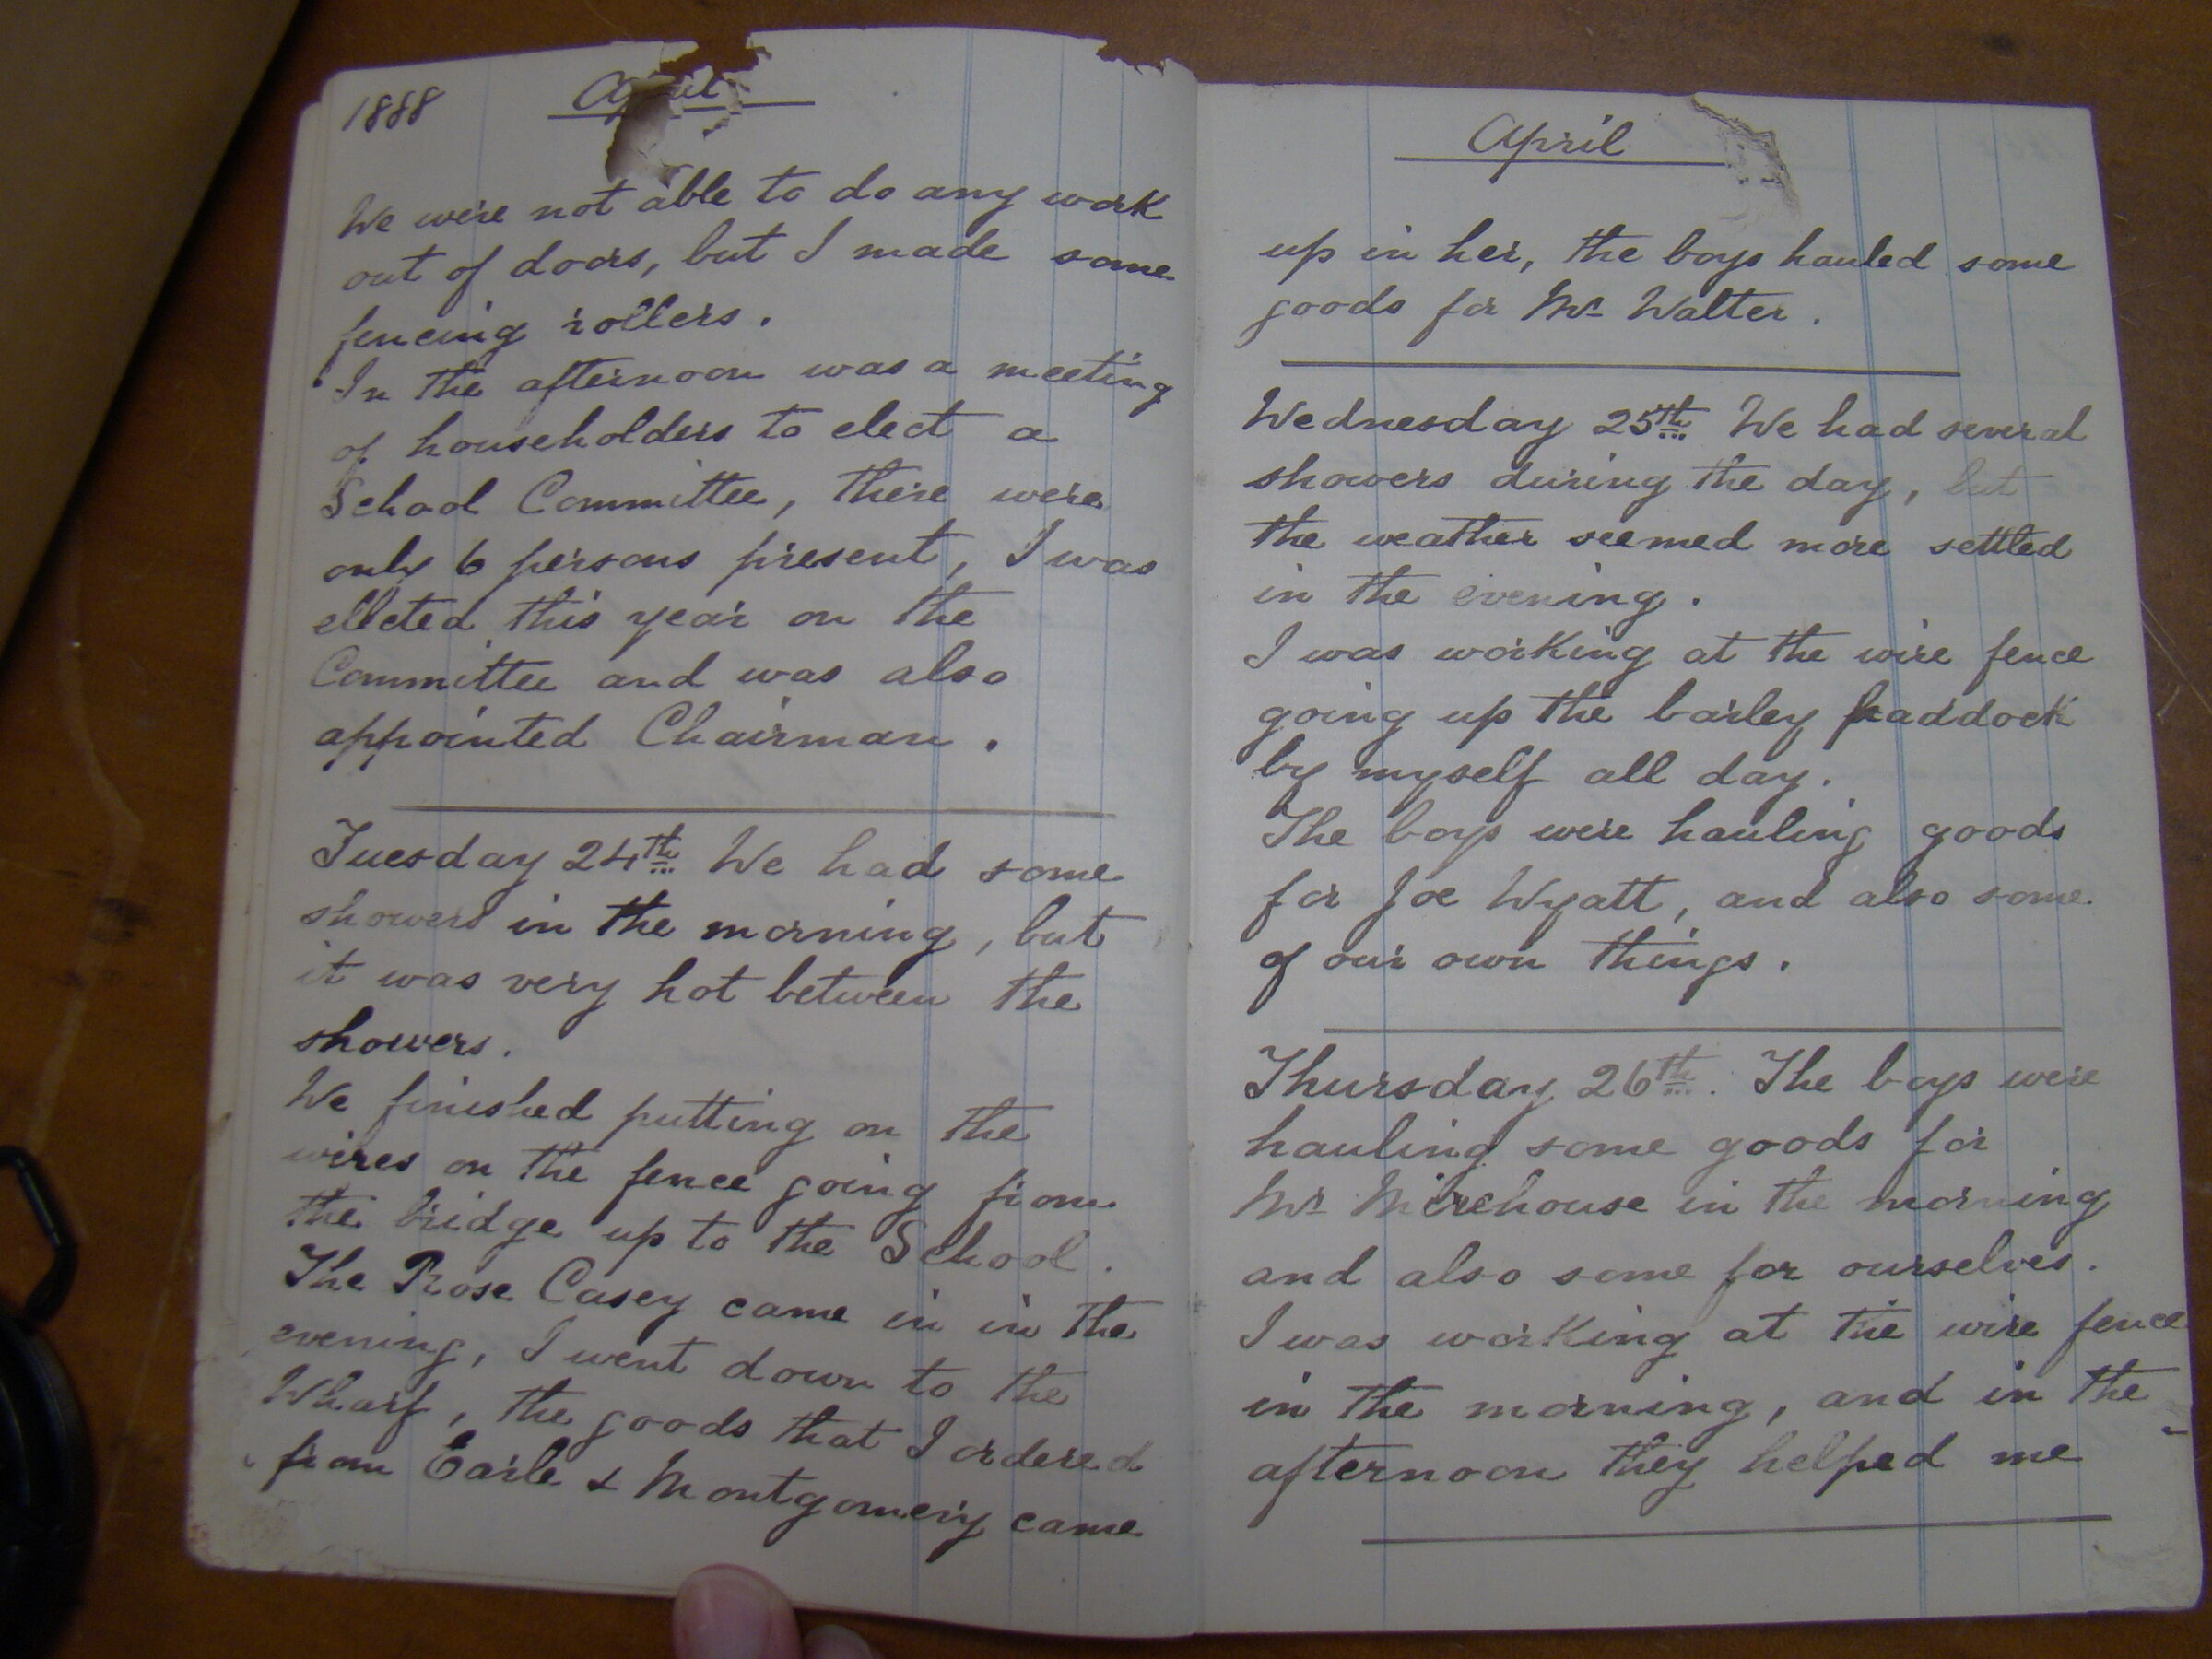 1888
April
We were not able to do any work
out of doors, but I made some
fencing rollers.
In the afternoon was a meeting
of householders to elect a
School Committee, there were
only 6 persons present, I was
ellected this year on the
Committee and was also
appointed Chairman.
Tuesday 24th We had some
showers in the morning, but
it was very hot between the
showers.
We finished putting on the
wires on the fence going from
the bridge up to the School.
The Rose Casey came in in the
evening, I went down to the
Wharf, the goods that I ordered
from Earle & Montgomery came
April
up in her, the boys hauled some
goods for Mr Walter.
Wednesday 25th We had several
showers during the day, but
the weather seemed more settled
in the evening.
I was working at the wire fence
going up the barley paddock
by myself all day.
The boys were hauling goods
for Joe Wyatt, and also some
of our own things.
Thursday 26th. The boys were
hauling some goods for
Mr Mirehouse in the morning
and also some for ourselves.
I was working at the wire fence
in the morning, and in the
afternoon they helped me